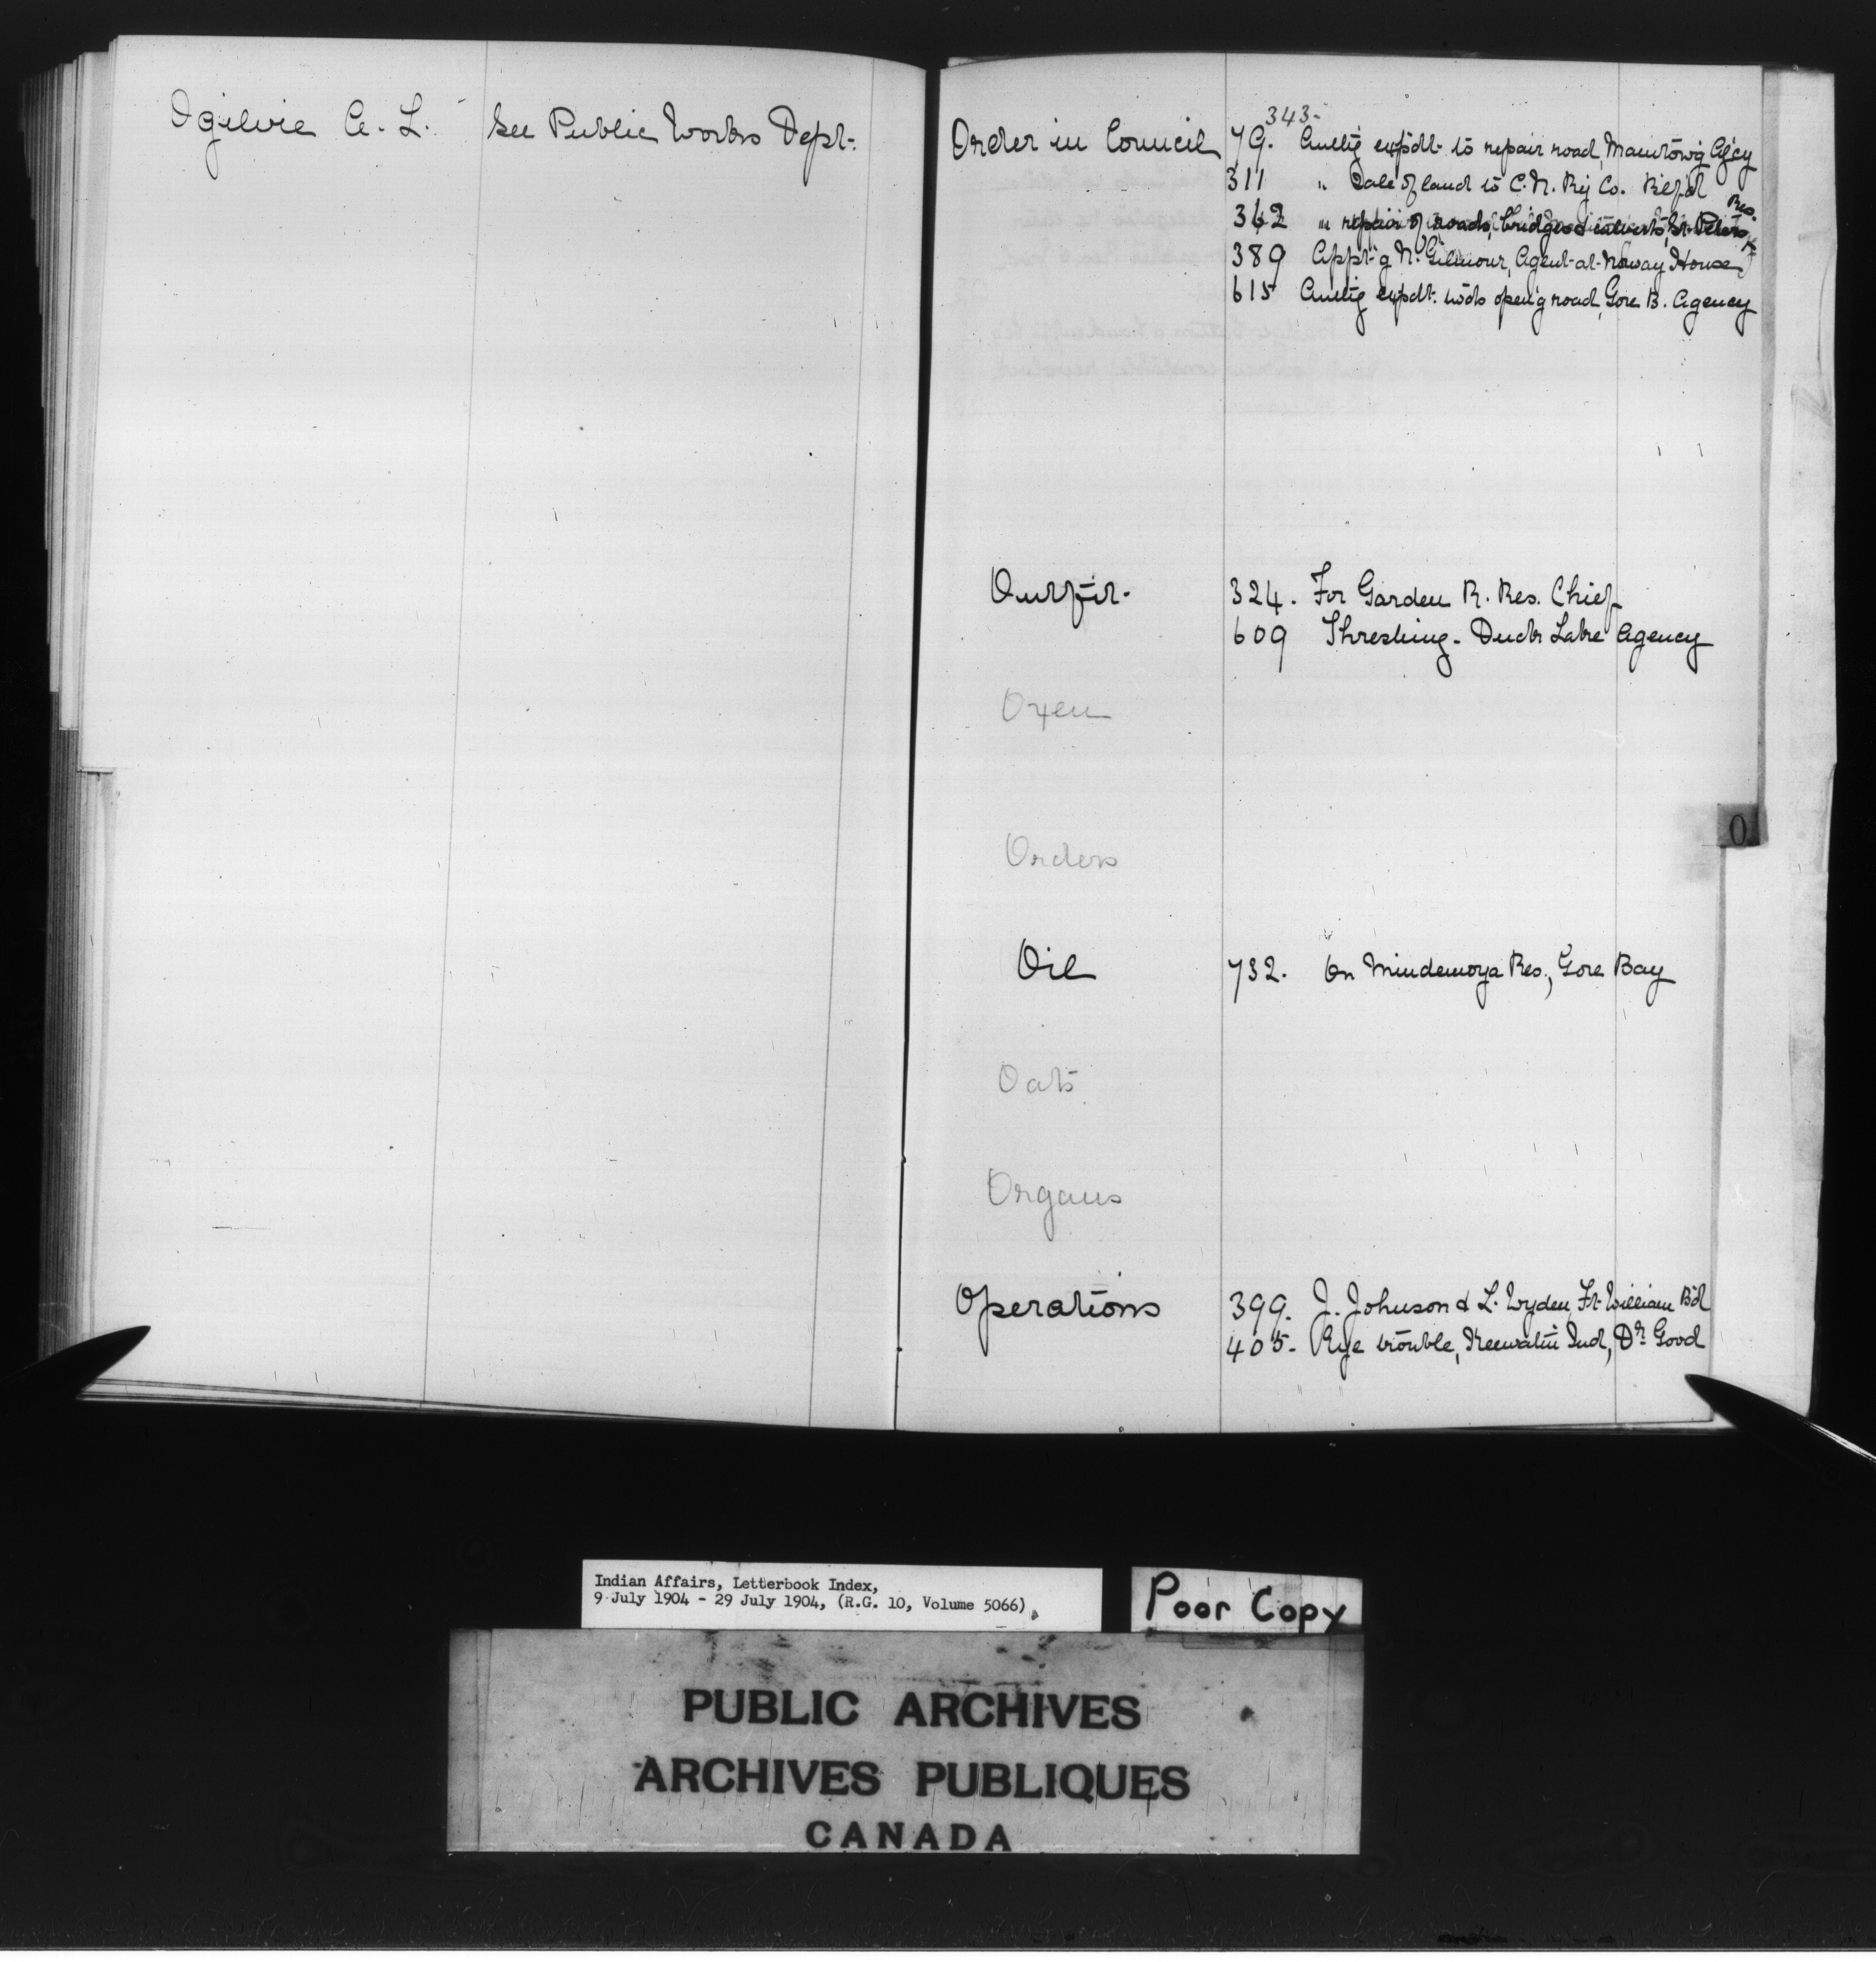 Ogilvie A. L. See Public Works Dept.
343-
Order in Council 79. Authg expdt. to repair road, Manitowg Agcy
311 " Sale of land to C. N. Ry Co.
Res.
362 " repair of roads, bridges & culverts, St. Peters
389 Appt'g N. Gilmour, Agent at Norway House
615 Authg expdt. twds open'g road, Gore B. Agency
Outfit. 324. For Garden R. Res. Chief
609 Threshing - Duck Lake Agency
Oxen
Orders
O
Oil 732. On Mindemoya Res., Gore Bay
Oats
Organs
Operations 399. J. Johnson & L. Wyden, Ft. William Bd
405- Eye trouble, Keewatin Ind, Dr. Good
Indian Affairs, Letterbook Index,
9 July 1904 - 29 July 1904, (R.G. 10, Volume 5066)
Poor Copy
PUBLIC ARCHIVES
ARCHIVES PUBLIQUES
CANADA